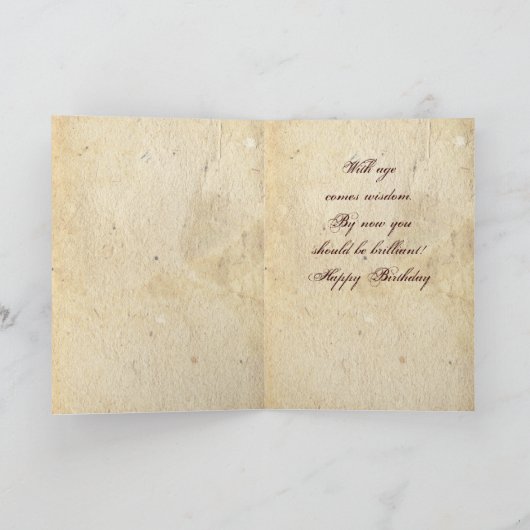 With age
comes wisdom.
By now you
should be brilliant!
Happy Birthday